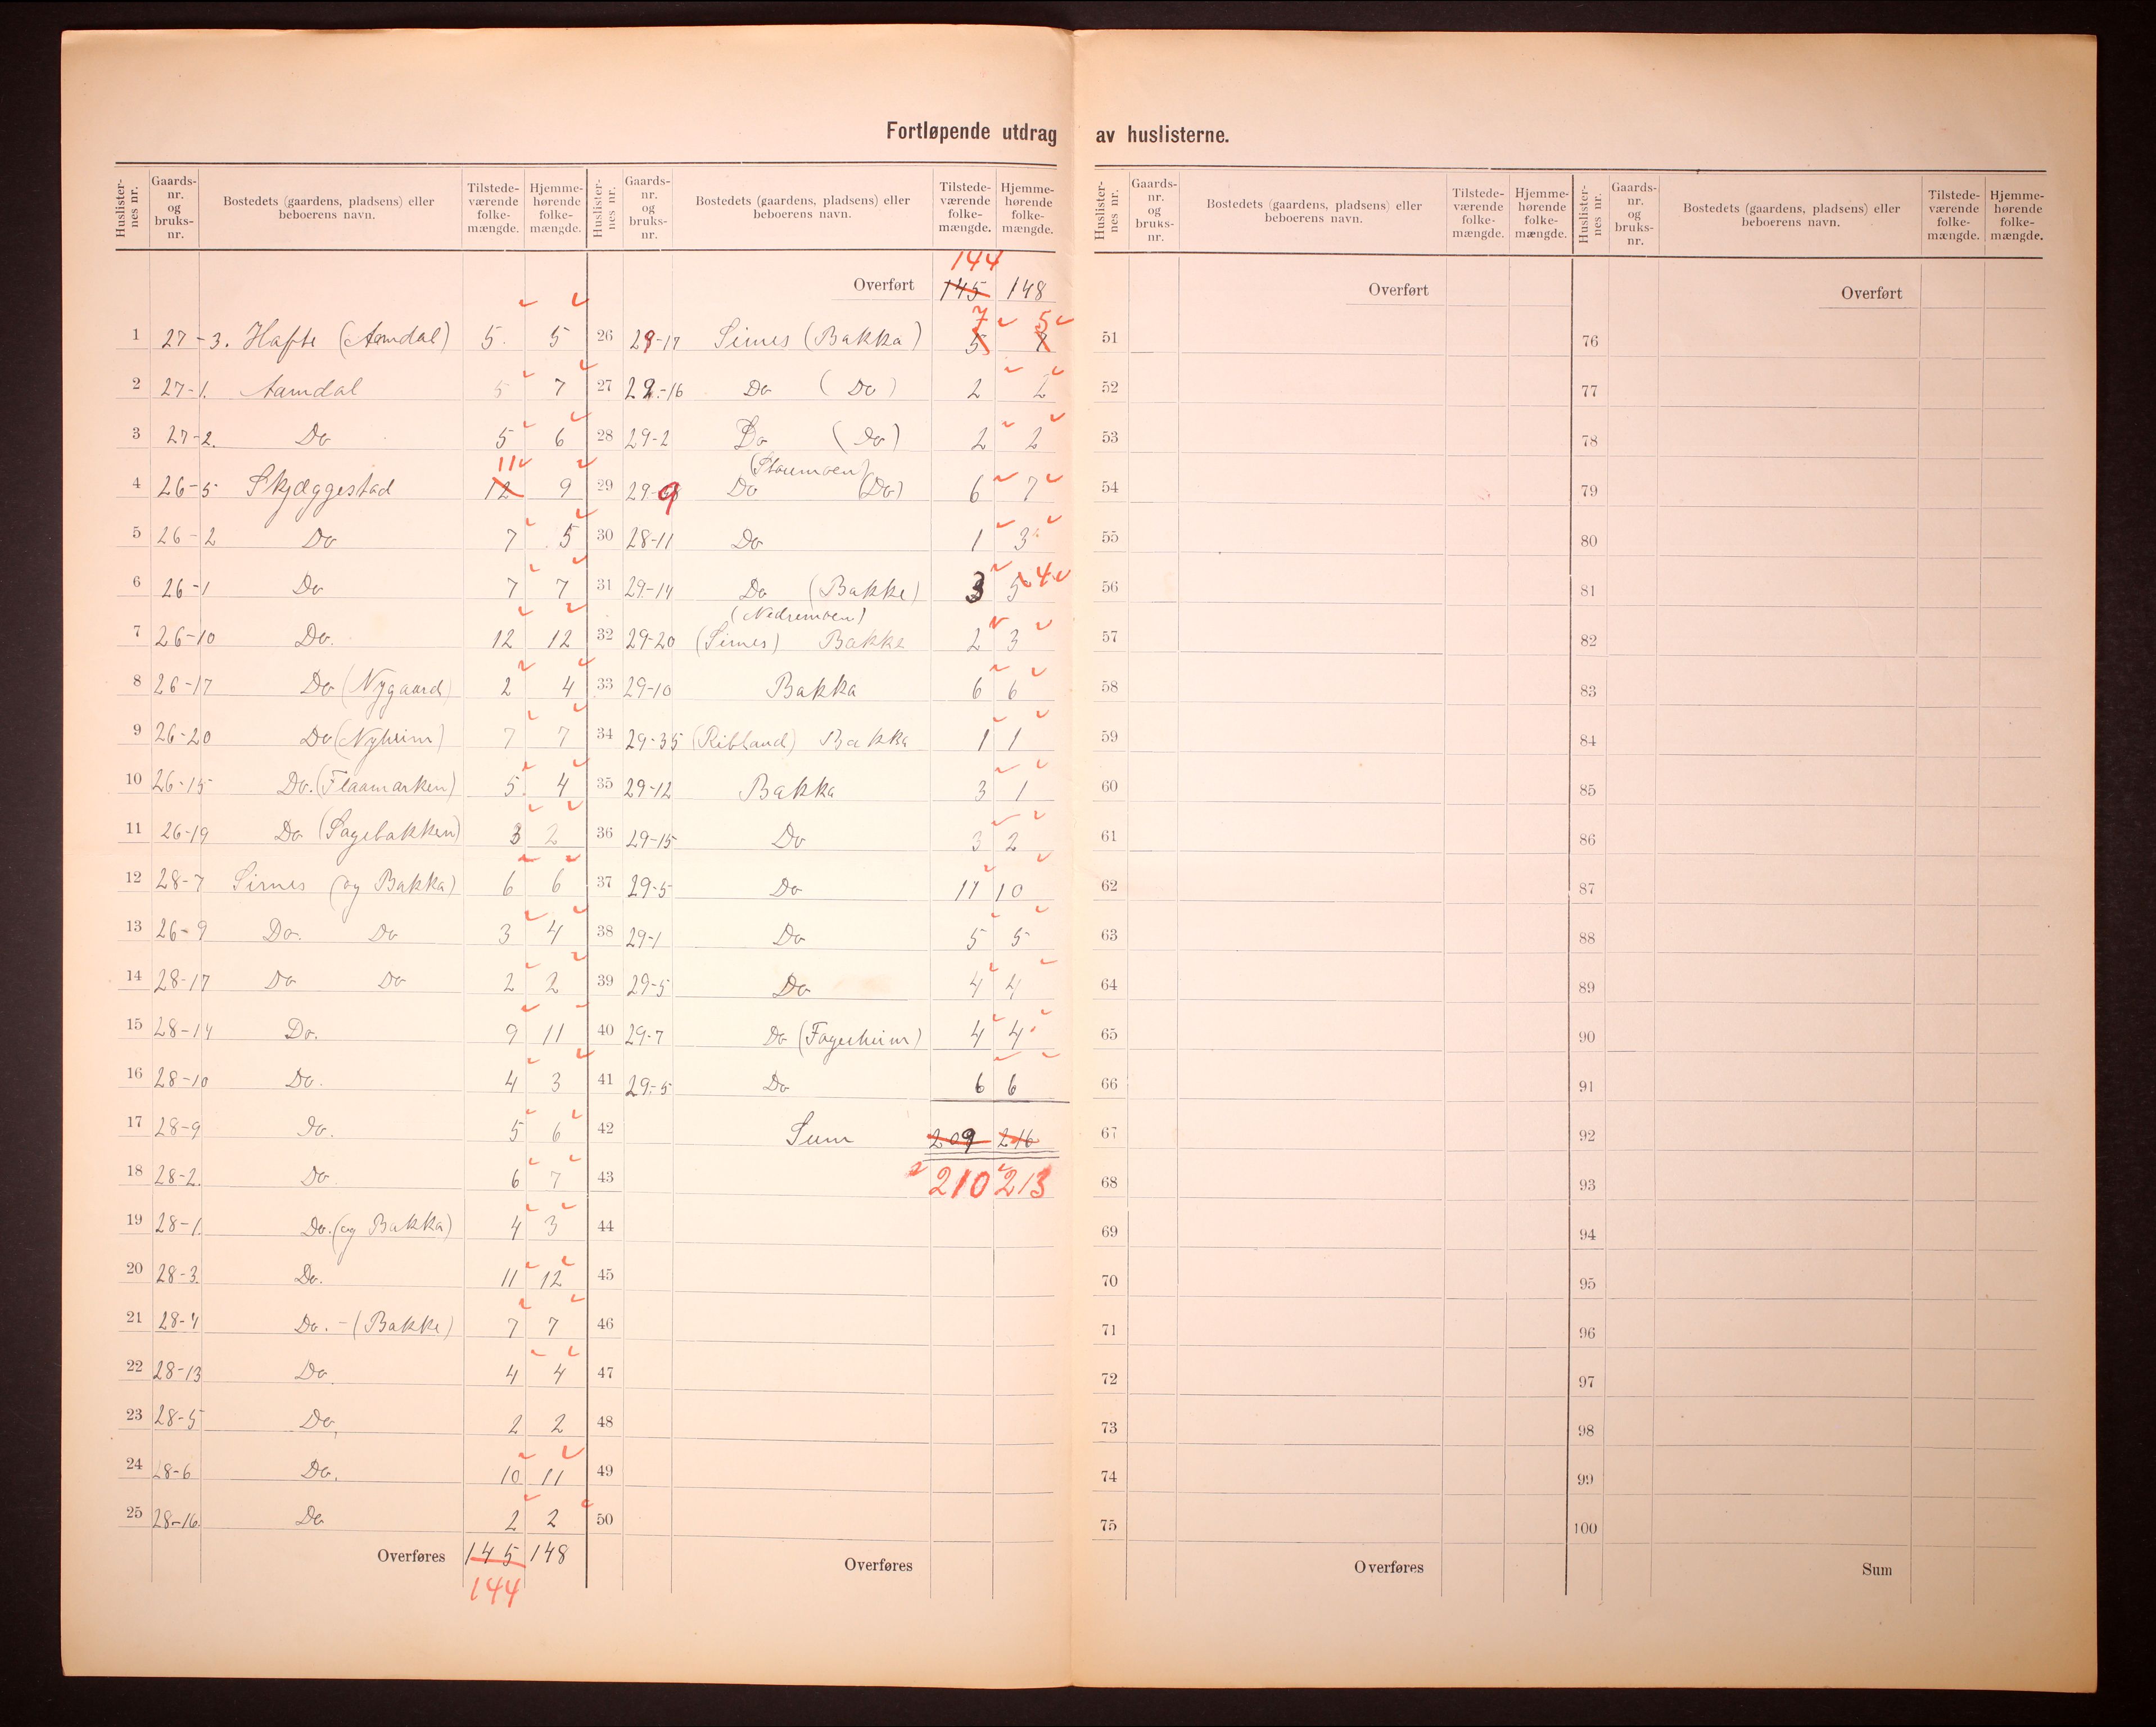 Fortløpende utdrag av huslisterne.
Huslisternes nr. Gaards-nr. og bruks-nr. Bostedets (gaardens, pladsens) eller beboerens navn. Tilstedeværende folkemængde. Hjemmehørende folkemængde.
1 27-3. Hafte (Aamdal) 5. 5
2 27-1. Aamdal 5 7
3 27-2. Do 5 6
4 26-5 Skjæggestad 12 11 9
5 26-2 Do 7 5
6 26-1 Do 7 7
7 26-10 Do. 12 12
8 26-17 Do (Nygaard) 2 4
9 26-20 Do (Nyheim) 7 7
10 26-15 Do. (Flaamarken) 5. 4
11 26-19 Do (Sagebakken) 3 2
12 28-7 Sirnes (og Bakka) 6 6
13 26-9 Do. Do 3 4
14 28-17 Do Do 2 2
15 28-14 Do. 9 11
16 28-10 Do. 4 3
17 28-9 Do. 5 6
18 28-2. Do 6 7
19 28-1. Do. (og Bakka) 4 3
20 28-3. Do. 11 12
21 28-4 Do. - (Bakke) 7 7
22 28-13 Do 4 4
23 28-5 Do, 2 2
24 28-6 Do. 10 11
25 28-16. Do 2 2
Overføres 145 148
144
Huslisternes nr. Gaards-nr. og bruks-nr. Bostedets (gaardens, pladsens) eller beboerens navn. Tilstedeværende folkemængde. Hjemmehørende folkemængde.
144
Overført 145 148
26 29-17 Sirnes (Bakka) 5 7 7 5
27 29-16 Do (Do) 2 2
28 29-2 Do (Do) 2 2
29 29-9 Do (Do) 6 7
30 28-11 Do 1 3
31 29-14 Do (Bakke) 3 5 4
(Nedremoen)
32 29-20 (Sirnes) Bakka 2 3
33 29-10 Bakka 6 6
34 29-35 Bakka 1 1
35 29-12 Bakka 3 1
36 29-15 Do 3 2
37 29-5 Do 11 10
38 29-1 Do 5 5
39 29-5 Do 4 4
40 29-7 Do (Fagerheim) 4 4
41 29-5 Do 6 6
42 Sum 209 216
43 210 213
44
45
46
47
48
49
50
Overføres
Huslisternes nr. Gaards-nr. og bruks-nr. Bostedets (gaardens, pladsens) eller beboerens navn. Tilstedeværende folkemængde. Hjemmehørende folkemængde.
Overført
51
52
53
54
55
56
57
58
59
60
61
62
63
64
65
66
67
68
69
70
71
72
73
74
75
Overføres
Huslisternes nr. Gaards-nr. og bruks-nr. Bostedets (gaardens, pladsens) eller beboerens navn. Tilstedeværende folkemængde. Hjemmehørende folkemængde.
Overført
76
77
78
79
80
81
82
83
84
85
86
87
88
89
90
91
92
93
94
95
96
97
98
99
100
Sum